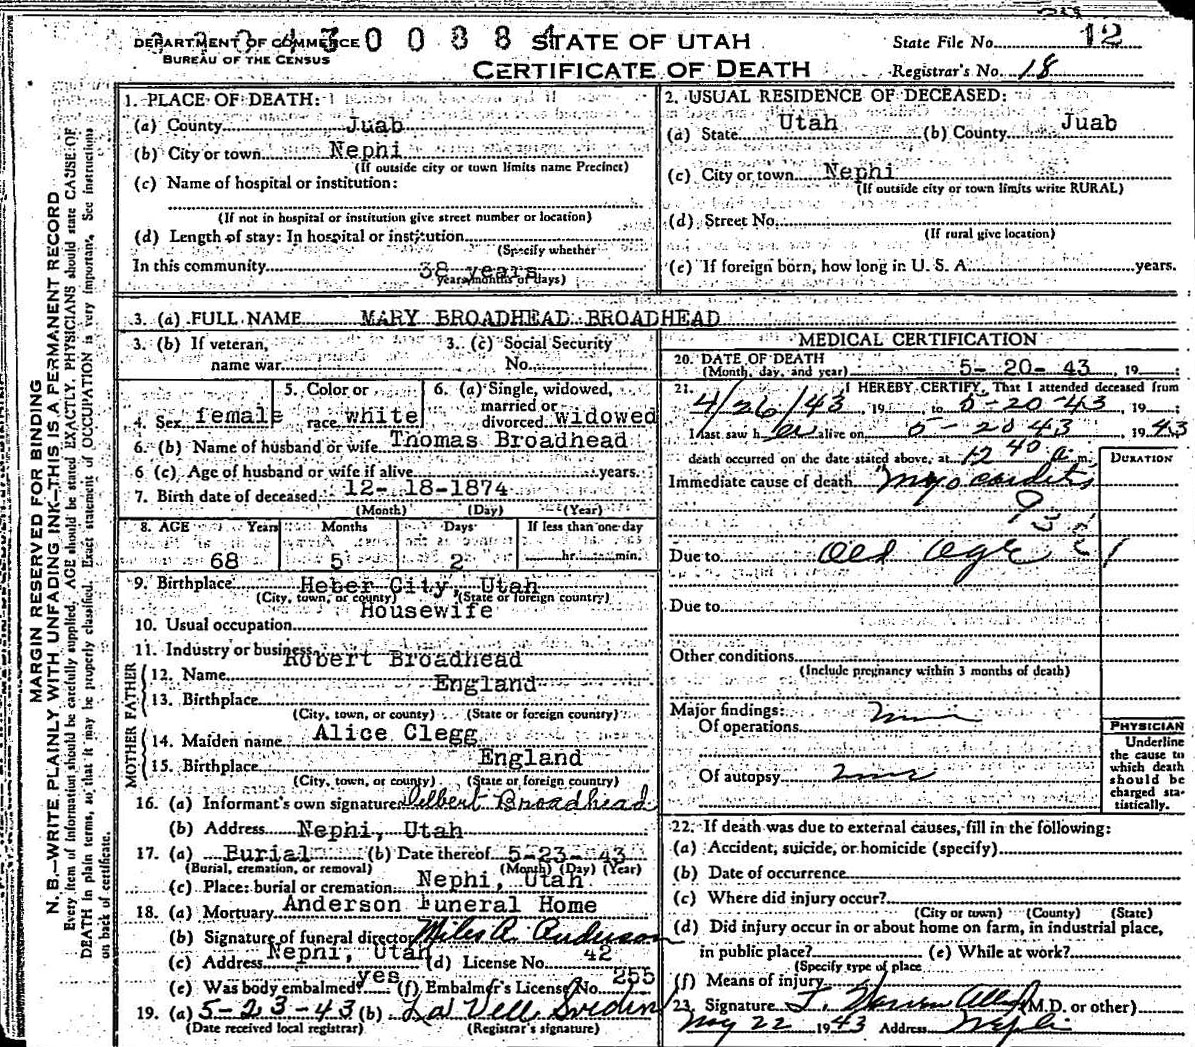 DEPARTMENT OF COMMERCE
BUREAU OF THE CENSUS
STATE OF UTAH
CERTIFICATE OF DEATH
State File No. 12
Registrar's No. 18
MARGIN RESERVED FOR BINDING
N. B.—WRITE PLAINLY WITH UNFADING INK—THIS IS A PERMANENT RECORD
Every item of information should be carefully supplied. AGE should be stated EXACTLY. PHYSICIANS should state CAUSE OF
DEATH in plain terms, so that it may be properly classified. Exact statement of OCCUPATION is very important. See instructions
on back of certificate.
1. PLACE OF DEATH:
(a) County Juab
(b) City or town Nephi
(If outside city or town limits name Precinct)
(c) Name of hospital or institution:
(If not in hospital or institution give street number or location)
(d) Length of stay: In hospital or institution
(Specify whether
In this community 38 years
years, months or days)
2. USUAL RESIDENCE OF DECEASED:
(a) State Utah (b) County Juab
(c) City or town Nephi
(If outside city or town limits write RURAL)
(d) Street No.
(If rural give location)
(e) If foreign born, how long in U. S. A. years.
3. (a) FULL NAME MARY BROADHEAD BROADHEAD
3. (b) If veteran, name war
3. (c) Social Security No.
4. Sex female
5. Color or race white
6. (a) Single, widowed, married or divorced widowed
6. (b) Name of husband or wife Thomas Broadhead
6 (c) Age of husband or wife if alive years.
7. Birth date of deceased 12- 18-1874
(Month) (Day) (Year)
8. AGE Years Months Days If less than one day
68 5 2 hr. min.
9. Birthplace Heber City, Utah
(City, town, or county) (State or foreign country)
10. Usual occupation Housewife
11. Industry or business
FATHER
12. Name Robert Broadhead
13. Birthplace England
(City, town, or county) (State or foreign country)
MOTHER
14. Maiden name Alice Clegg
15. Birthplace England
(City, town, or county) (State or foreign country)
16. (a) Informant's own signature Delbert Broadhead
(b) Address Nephi, Utah
17. (a) Burial (b) Date thereof 5-23-43
(Burial, cremation, or removal) (Month) (Day) (Year)
(c) Place: burial or cremation Nephi, Utah
18. (a) Mortuary Anderson Funeral Home
(b) Signature of funeral director Miles A. Anderson
(c) Address Nephi, Utah (d) License No. 42
(e) Was body embalmed? yes (f) Embalmer's License No. 255
19. (a) 5-23-43 (b) La Vell
(Date received local registrar) (Registrar's signature)
MEDICAL CERTIFICATION
20. DATE OF DEATH
(Month, day, and year) 5- 20- 43, 19
21. I HEREBY CERTIFY, That I attended deceased from
4/26/43, 19 to 5-20-43, 19 ;
I last saw her alive on 5-20 43 1943
death occurred on the date stated above, at 12 40 a.m.
DURATION
Immediate cause of death Myocarditis
Due to Old Age
Due to
Other conditions
(Include pregnancy within 3 months of death)
Major findings:
Of operations
Of autopsy
PHYSICIAN
Underline
the cause to
which death
should be
charged sta-
tistically.
22. If death was due to external causes, fill in the following:
(a) Accident, suicide, or homicide (specify)
(b) Date of occurrence
(c) Where did injury occur?
(City or town) (County) (State)
(d) Did injury occur in or about home on farm, in industrial place,
in public place? (e) While at work?
(Specify type of place
(f) Means of injury
23. Signature (M.D. or other)
May 22 1943 Address Nephi